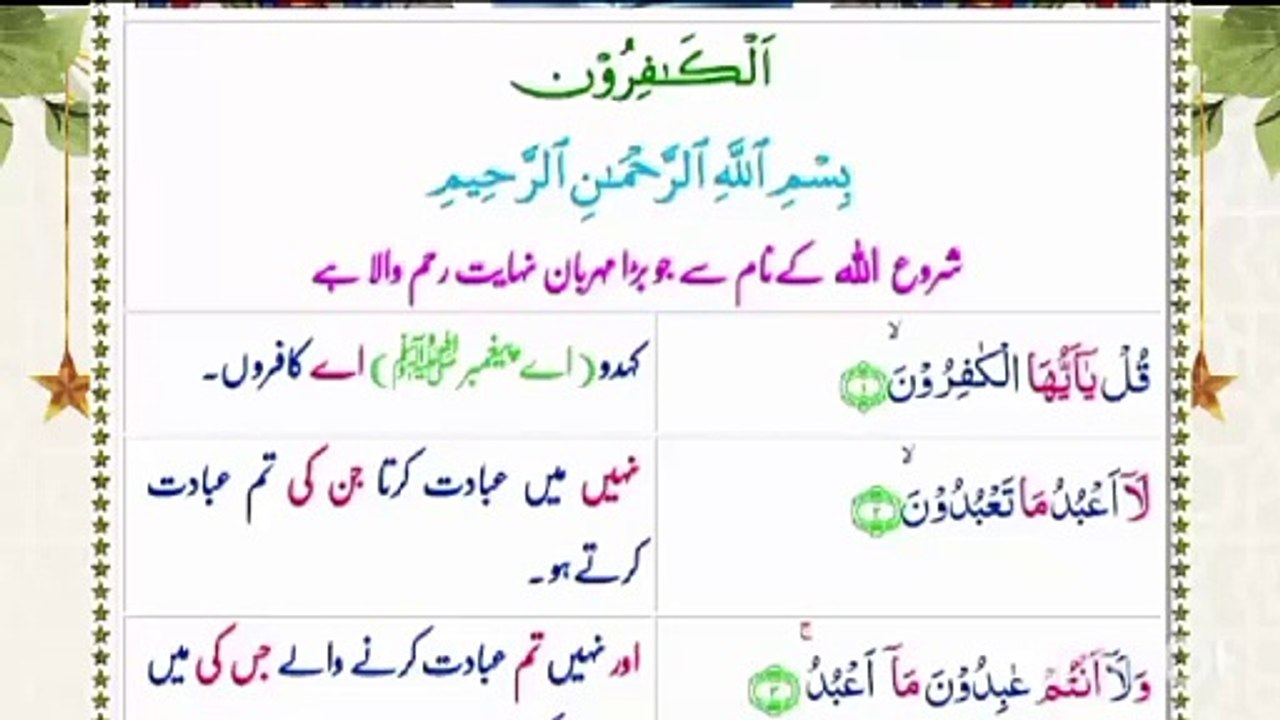 اَلْكٰفِرُوْن
بِسْمِ ٱللَّهِ ٱلرَّحْمَـٰنِ ٱلرَّحِيمِ
شروع اللہ کے نام سے جو بڑا مہربان نہایت رحم والا ہے
قُلْ يٰۤاَيُّهَا الْكٰفِرُوْنَۙ ﴿۱﴾
کہدو (اے پیغمبر ﷺ) اے کافروں۔
لَاۤ اَعْبُدُ مَا تَعْبُدُوْنَۙ ﴿۲﴾
نہیں میں عبادت کرتا جن کی تم عبادت
کرتے ہو۔
وَلَاۤ اَنْتُمْ عٰبِدُوْنَ مَاۤ اَعْبُدُۚ ﴿۳﴾
اور نہیں تم عبادت کرنے والے جس کی میں